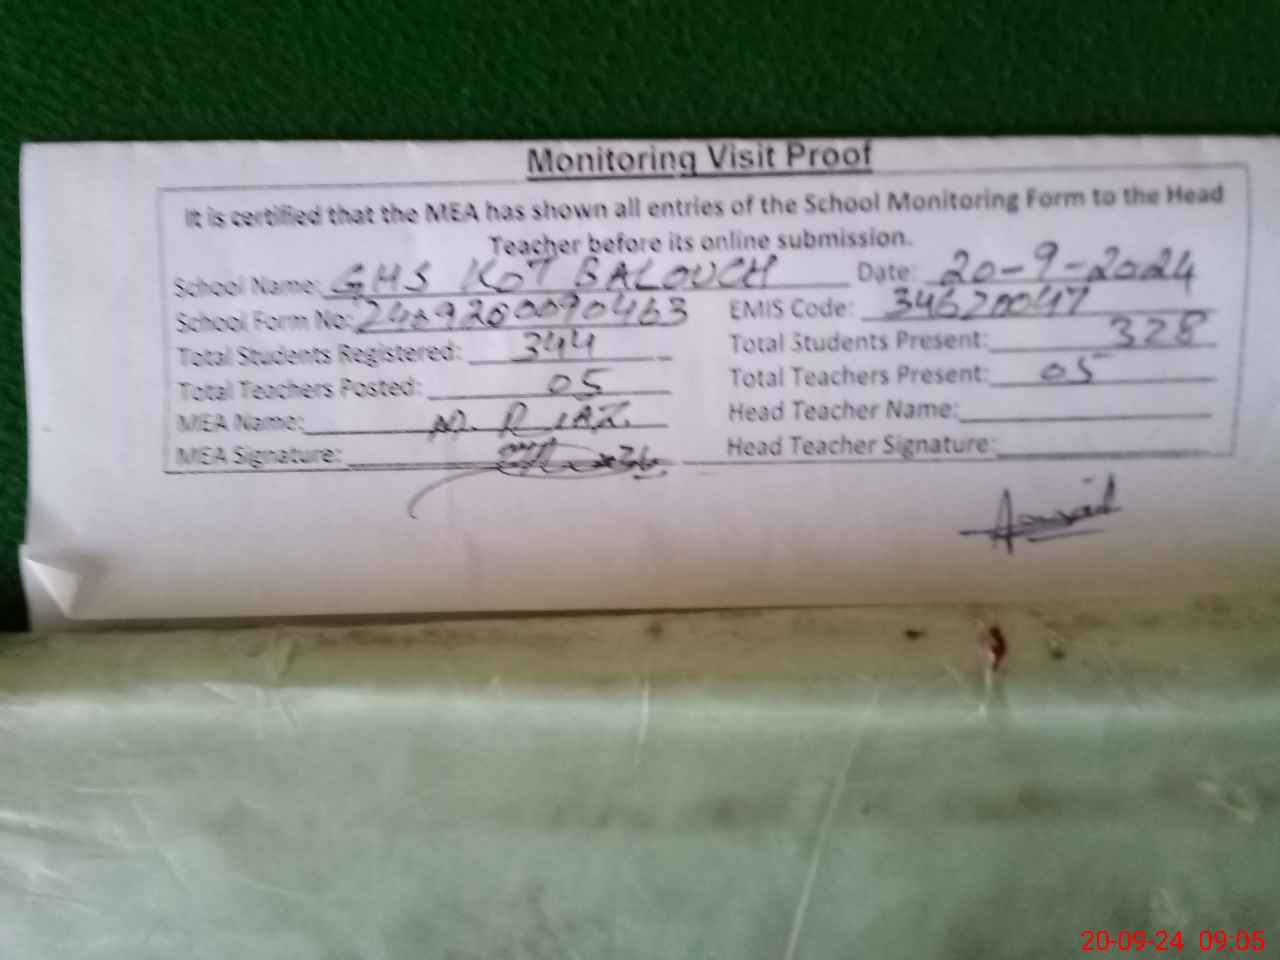 Monitoring Visit Proof
It is certified that the MEA has shown all entries of the School Monitoring Form to the Head
Teacher before its online submission.
School Name: GHS KOT BALOUCH Date: 20-9-2024
School Form No: 2409200090463 EMIS Code: 34620047
Total Students Registered: 344 Total Students Present: 328
Total Teachers Posted: 05 Total Teachers Present: 05
MEA Name: M. RIAZ Head Teacher Name:
MEA Signature: Head Teacher Signature:
20-09-24 09:05